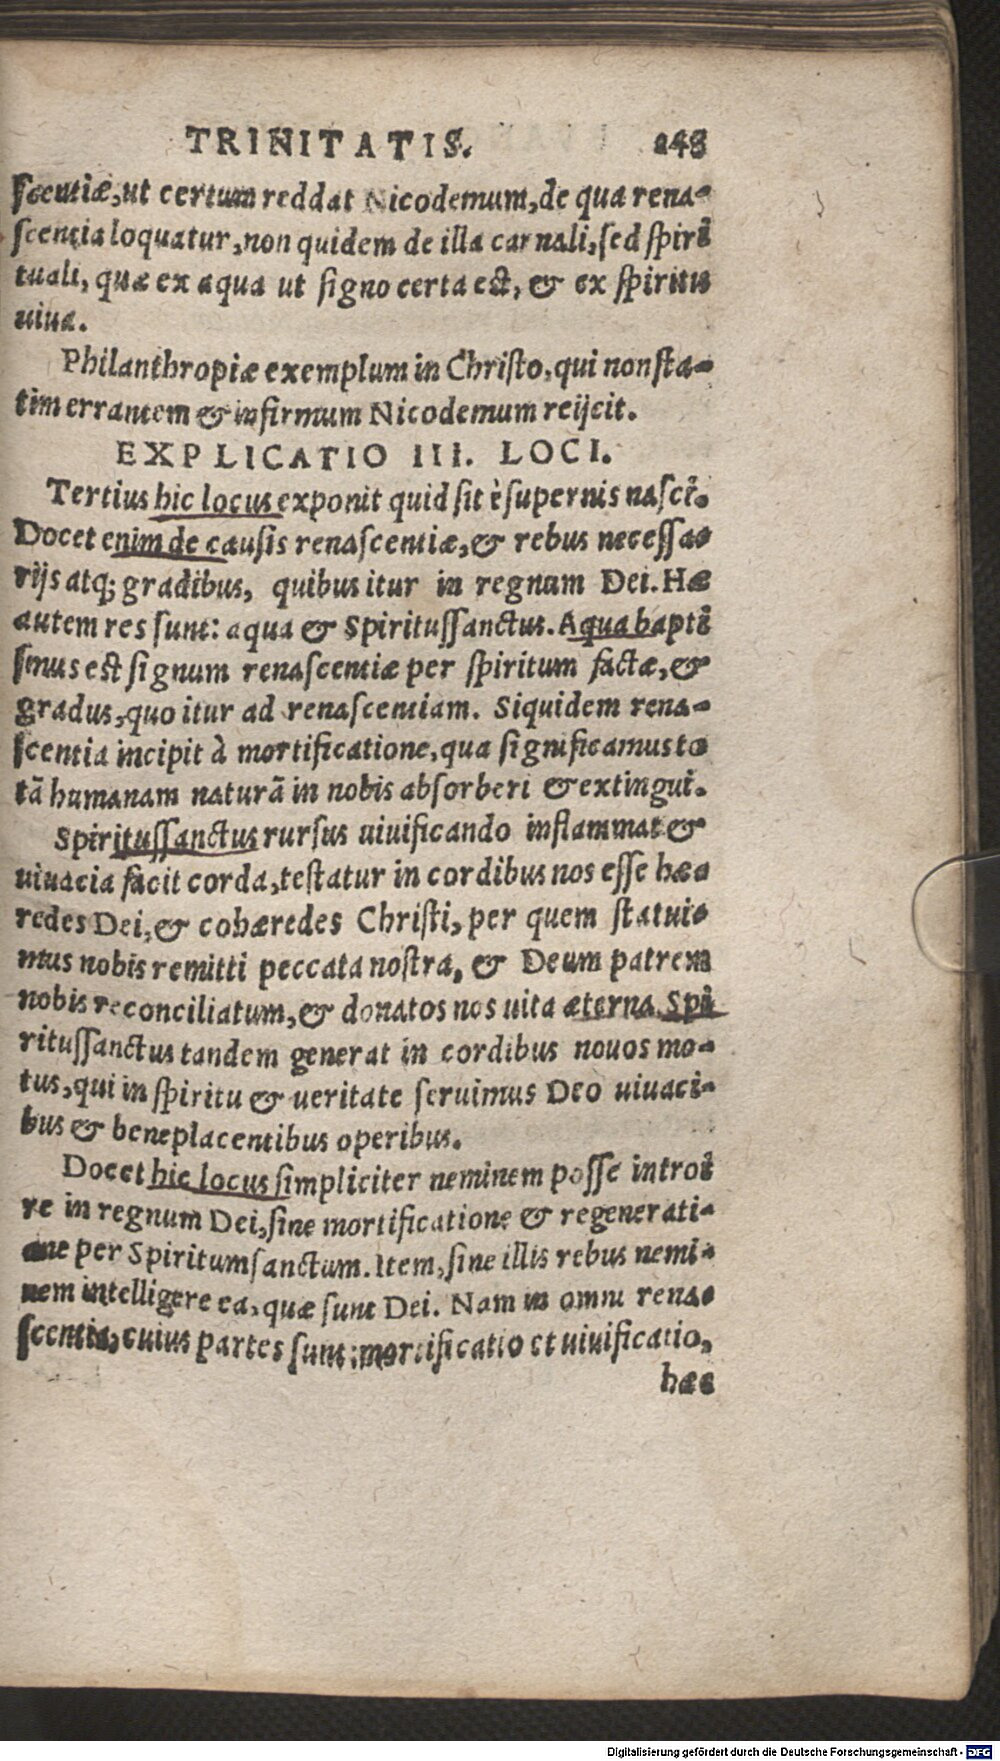 TRINITATIS. 248
scentiæ, ut certum reddat Nicodemum, de qua rena-
scentia loquatur, non quidem de illa carnali, sed spiri
tuali, quæ ex aqua ut signo certa est, & ex spiritu
uiua.
Philanthropiæ exemplum in Christo, qui non sta-
tim errantem & infirmum Nicodemum reijcit.
EXPLICATIO III. LOCI.
Tertius hic locus exponit quid sit è supernis nasci.
Docet enim de causis renascentiæ, & rebus necessa-
rijs atq; gradibus, quibus itur in regnum Dei. Hæ
autem res sunt: aqua & Spiritussanctus. Aqua bapti
smus est signum renascentiæ per spiritum factæ, &
gradus, quo itur ad renascentiam. Siquidem rena-
scentia incipit à mortificatione, qua significamus to-
tā humanam naturā in nobis absorberi & extingui.
Spiritussanctus rursus uiuificando inflammat &
uiuacia facit corda, testatur in cordibus nos esse hæ-
redes Dei, & cohæredes Christi, per quem statui-
mus nobis remitti peccata nostra, & Deum patrem
nobis reconciliatum, & donatos nos uita æterna. Spi
ritussanctus tandem generat in cordibus nouos mo-
tus, qui in spiritu & ueritate seruimus Deo uiuaci-
bus & beneplacentibus operibus.
Docet hic locus simpliciter neminem posse introi
re in regnum Dei, sine mortificatione & regenerati-
one per Spiritumsanctum. Item, sine illis rebus nemi-
nem intelligere ea, quæ sunt Dei. Nam in omni rena-
scentia, cuius partes sunt: mortificatio et uiuificatio,
hæc
Digitalisierung gefördert durch die Deutsche Forschungsgemeinschaft - DFG